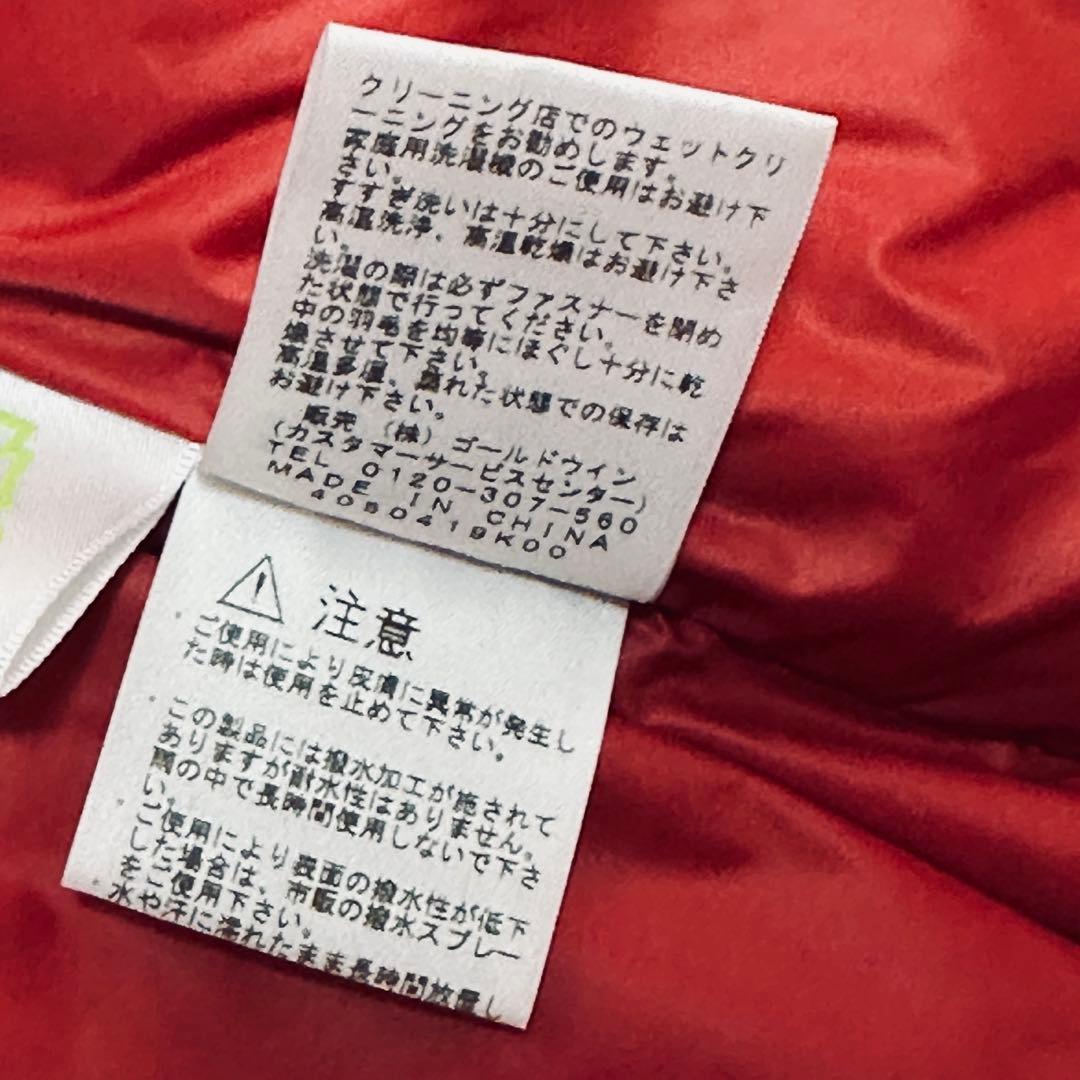 クリーニング店でのウェットクリ
ーニングをお勧めします。
家庭用洗濯機のご使用はお避け下
さい。
すすぎ洗いは十分にして下さい。
高温洗浄、高温乾燥はお避け下さ
い。
洗濯の際は必ずファスナーを閉め
た状態で行ってください。
中の羽毛を均等にほぐし十分に乾
燥させて下さい。
高温多湿、濡れた状態での保存は
お避け下さい。
販売 (株) ゴールドウイン
(カスタマーサービスセンター)
TEL 0120-307-560
MADE IN CHINA
4080419K00
注意
ご使用により皮膚に異常が発生し
た時は使用を止めて下さい。
この製品には撥水加工が施されて
ありますが耐水性はありません。
雨の中で長時間使用しないで下さ
い。
ご使用により表面の撥水性が低下
した場合は、市販の撥水スプレー
をご使用下さい。
水や汗に濡れたまま長時間放置し